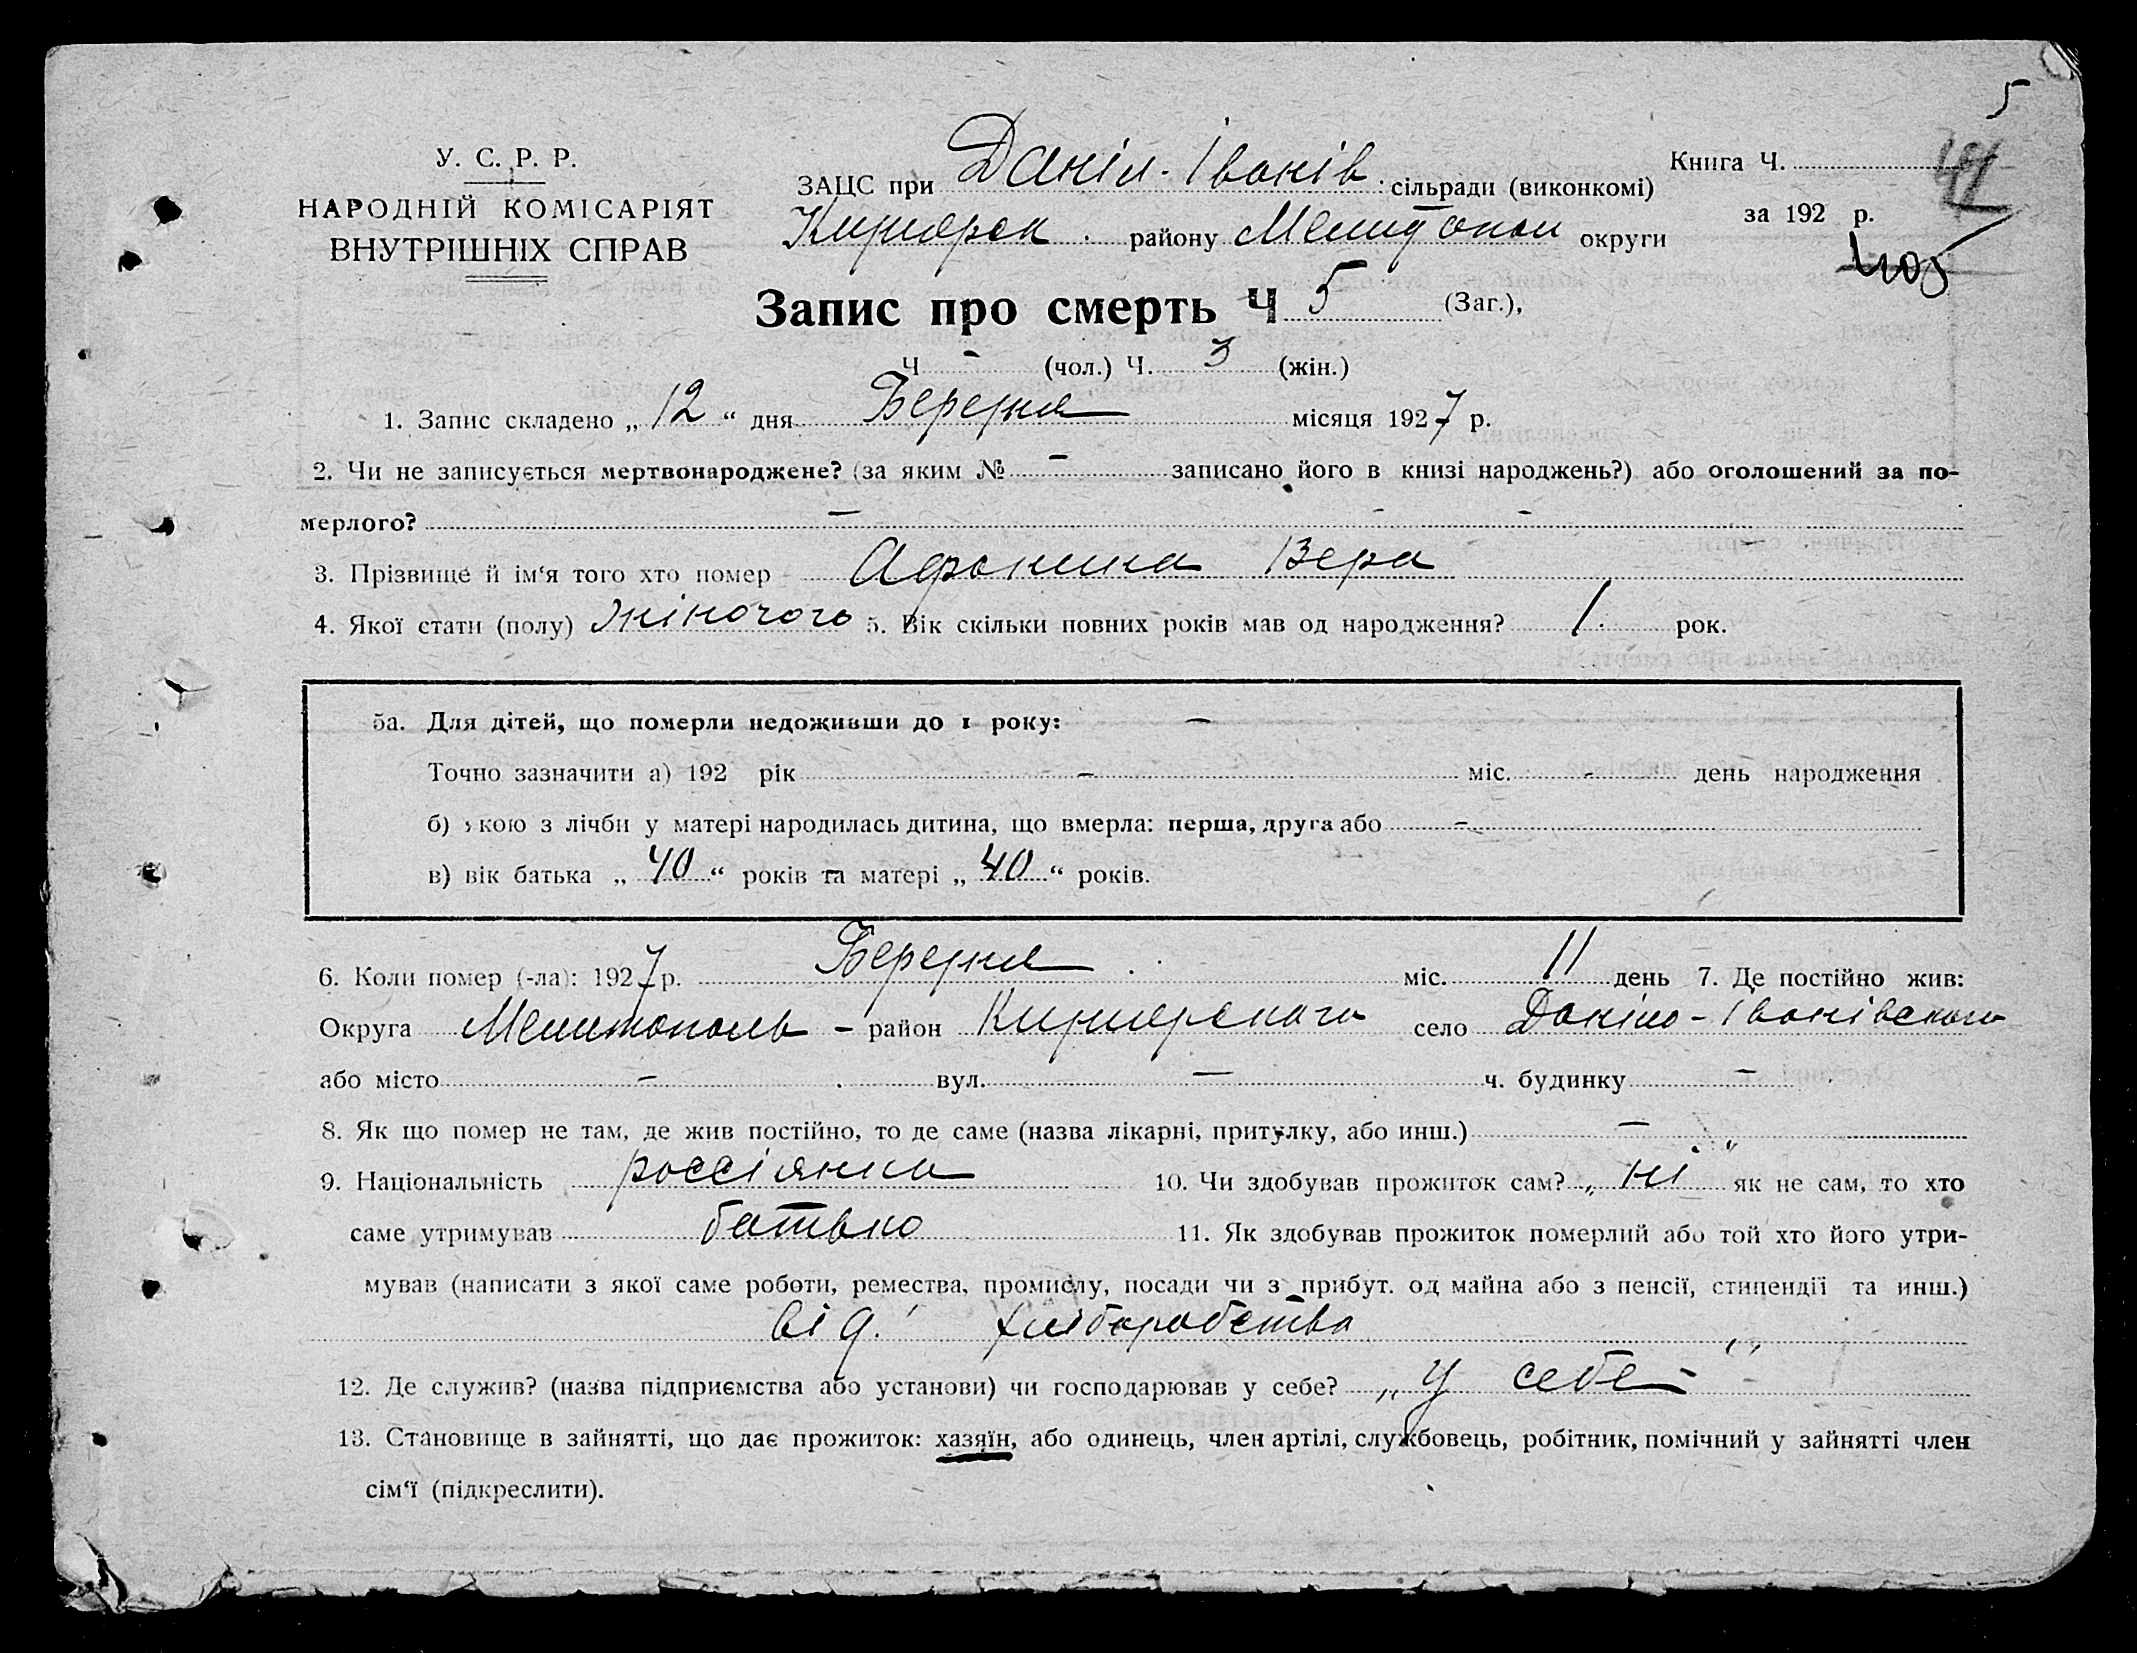 5
У. С. Р. Р.
НАРОДНІЙ КОМІСАРІЯТ
ВНУТРІШНІХ СПРАВ
ЗАЦС при Даніл-Іванів сільради (виконкомі)
Книга Ч.
Кирилрек району Мелитопол округи
за 192 р.
405
Запис про смерть Ч 5 (Заг.),
Ч - (чол.) Ч. 3 (жін.)
1. Запис складено „ 12 “ дня Березня місяця 1927 р.
2. Чи не записується мертвонароджене? (за яким № - записано його в книзі народжень?) або оголошений за по-
мерлого? - - -
3. Прізвище й ім‘я того хто помер Афонина Вера
4. Якої стати (полу) жіночого 5. Вік скільки повних років мав од народження? 1. рок.
5а. Для дітей, що померли недоживши до 1 року: -
Точно зазначити а) 192 рік - міс. - день народження
б) якою з лічби у матері народилась дитина, що вмерла: перша, друга або -
в) вік батька „ 40 “ років та матері „ 40 “ років.
6. Коли помер (-ла): 1927 р. Березня міс. 11 день 7. Де постійно жив:
Округа Мелитополь - район село Даніло-Іванівского
або місто - вул. - ч. будинку -
8. Як що помер не там, де жив постійно, то де саме (назва лікарні, притулку, або инш.) -
9. Національність россіянка 10. Чи здобував прожиток сам? „ ні “ як не сам, то хто
саме утримував батько 11. Як здобував прожиток померлий або той хто його утри-
мував (написати з якої саме роботи, ремества, промислу, посади чи з прибут. од майна або з пенсії, стипендії та инш.)
від хліборобства
12. Де служив? (назва підприємства або установи) чи господарював у себе? „ У себе - “
13. Становище в зайнятті, що дає прожиток: хазяїн, або одинець, член артілі, службовець, робітник, помічний у зайнятті член
сім‘ї (підкреслити).